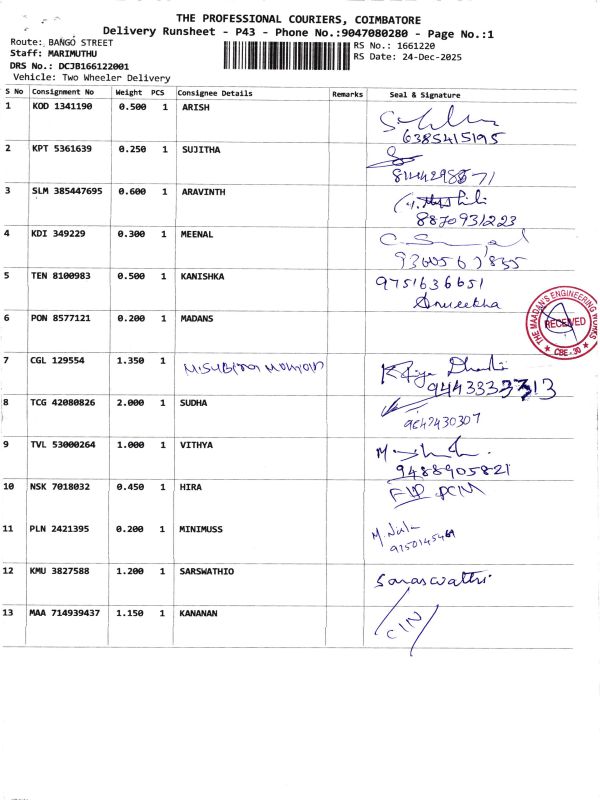 THE PROFESSIONAL COURIERS, COIMBATORE
Delivery Runsheet - P43 - Phone No.:9047080280 - Page No.:1
Route: BANGO STREET
RS No.: 1661220
Staff: MARIMUTHU
RS Date: 24-Dec-2025
DRS No.: DCJB166122001
Vehicle: Two Wheeler Delivery
S No Consignment No Weight PCS Consignee Details Remarks Seal & Signature
1 KOD 1341190 0.500 1 ARISH
6385415195
2 KPT 5361639 0.250 1 SUJITHA
3 SLM 385447695 0.600 1 ARAVINTH
8870931223
4 KDI 349229 0.300 1 MEENAL
5 TEN 8100983 0.500 1 KANISHKA 9751636651
Anueekha
6 PON 8577121 0.200 1 MADANS
THE MAADAN'S ENGINEERING WORKS
RECEIVED
CBE-30
7 CGL 129554 1.350 1
8 TCG 42080826 2.000 1 SUDHA
9842430307
9 TVL 53000264 1.000 1 VITHYA
9488905821
10 NSK 7018032 0.450 1 HIRA
11 PLN 2421395 0.200 1 MINIMUSS
12 KMU 3827588 1.200 1 SARSWATHIO Saraswathi
13 MAA 714939437 1.150 1 KANANAN
CIN